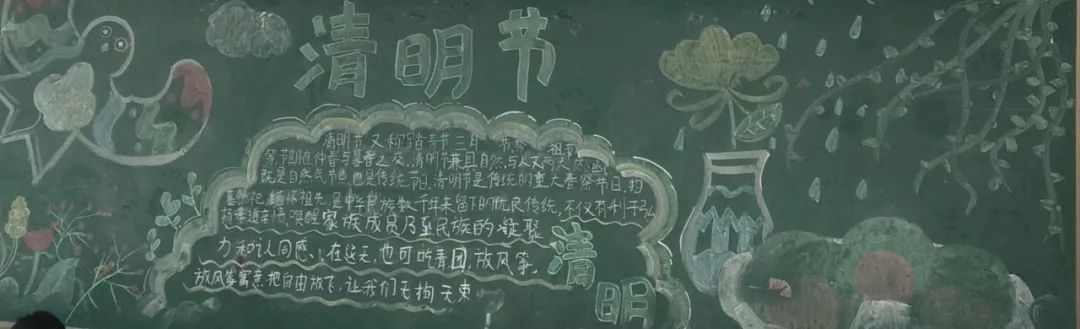 清明节
清明节又称踏青节三月 祖节
节期在仲春与暮春之交,清明节兼具自然与人文两大内涵
既是自然节气,也是传统节日,清明节是传统的重大春祭节日,扫
墓祭祀、缅怀祖先,是中华民族数千年来留下的优良传统,不仅有利于弘
扬孝道亲情唤醒家族成员乃至民族的凝聚
力和认同感、在这天,也可吃青团,放风筝,
放风筝寓意把自由放飞,让我们无拘无束
清明